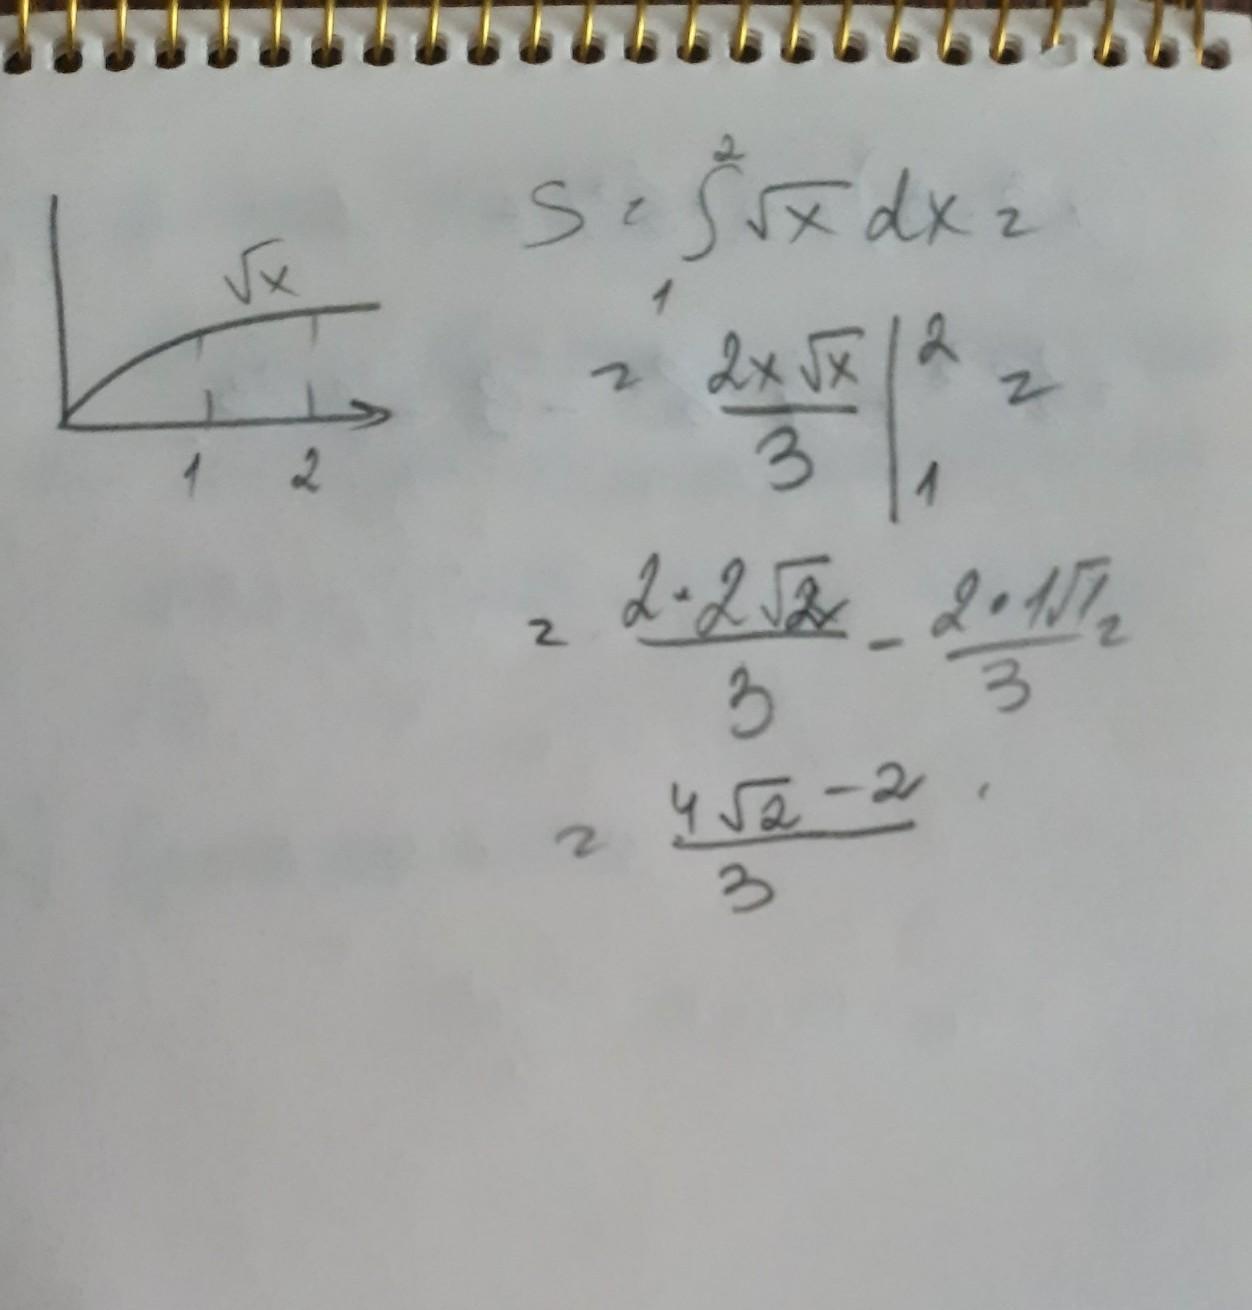 √x
1 2
S = ∫₁² √x dx =
= 2x√x / 3 |₁² =
= 2·2√2 / 3 - 2·1√1 / 3 =
= 4√2 - 2 / 3